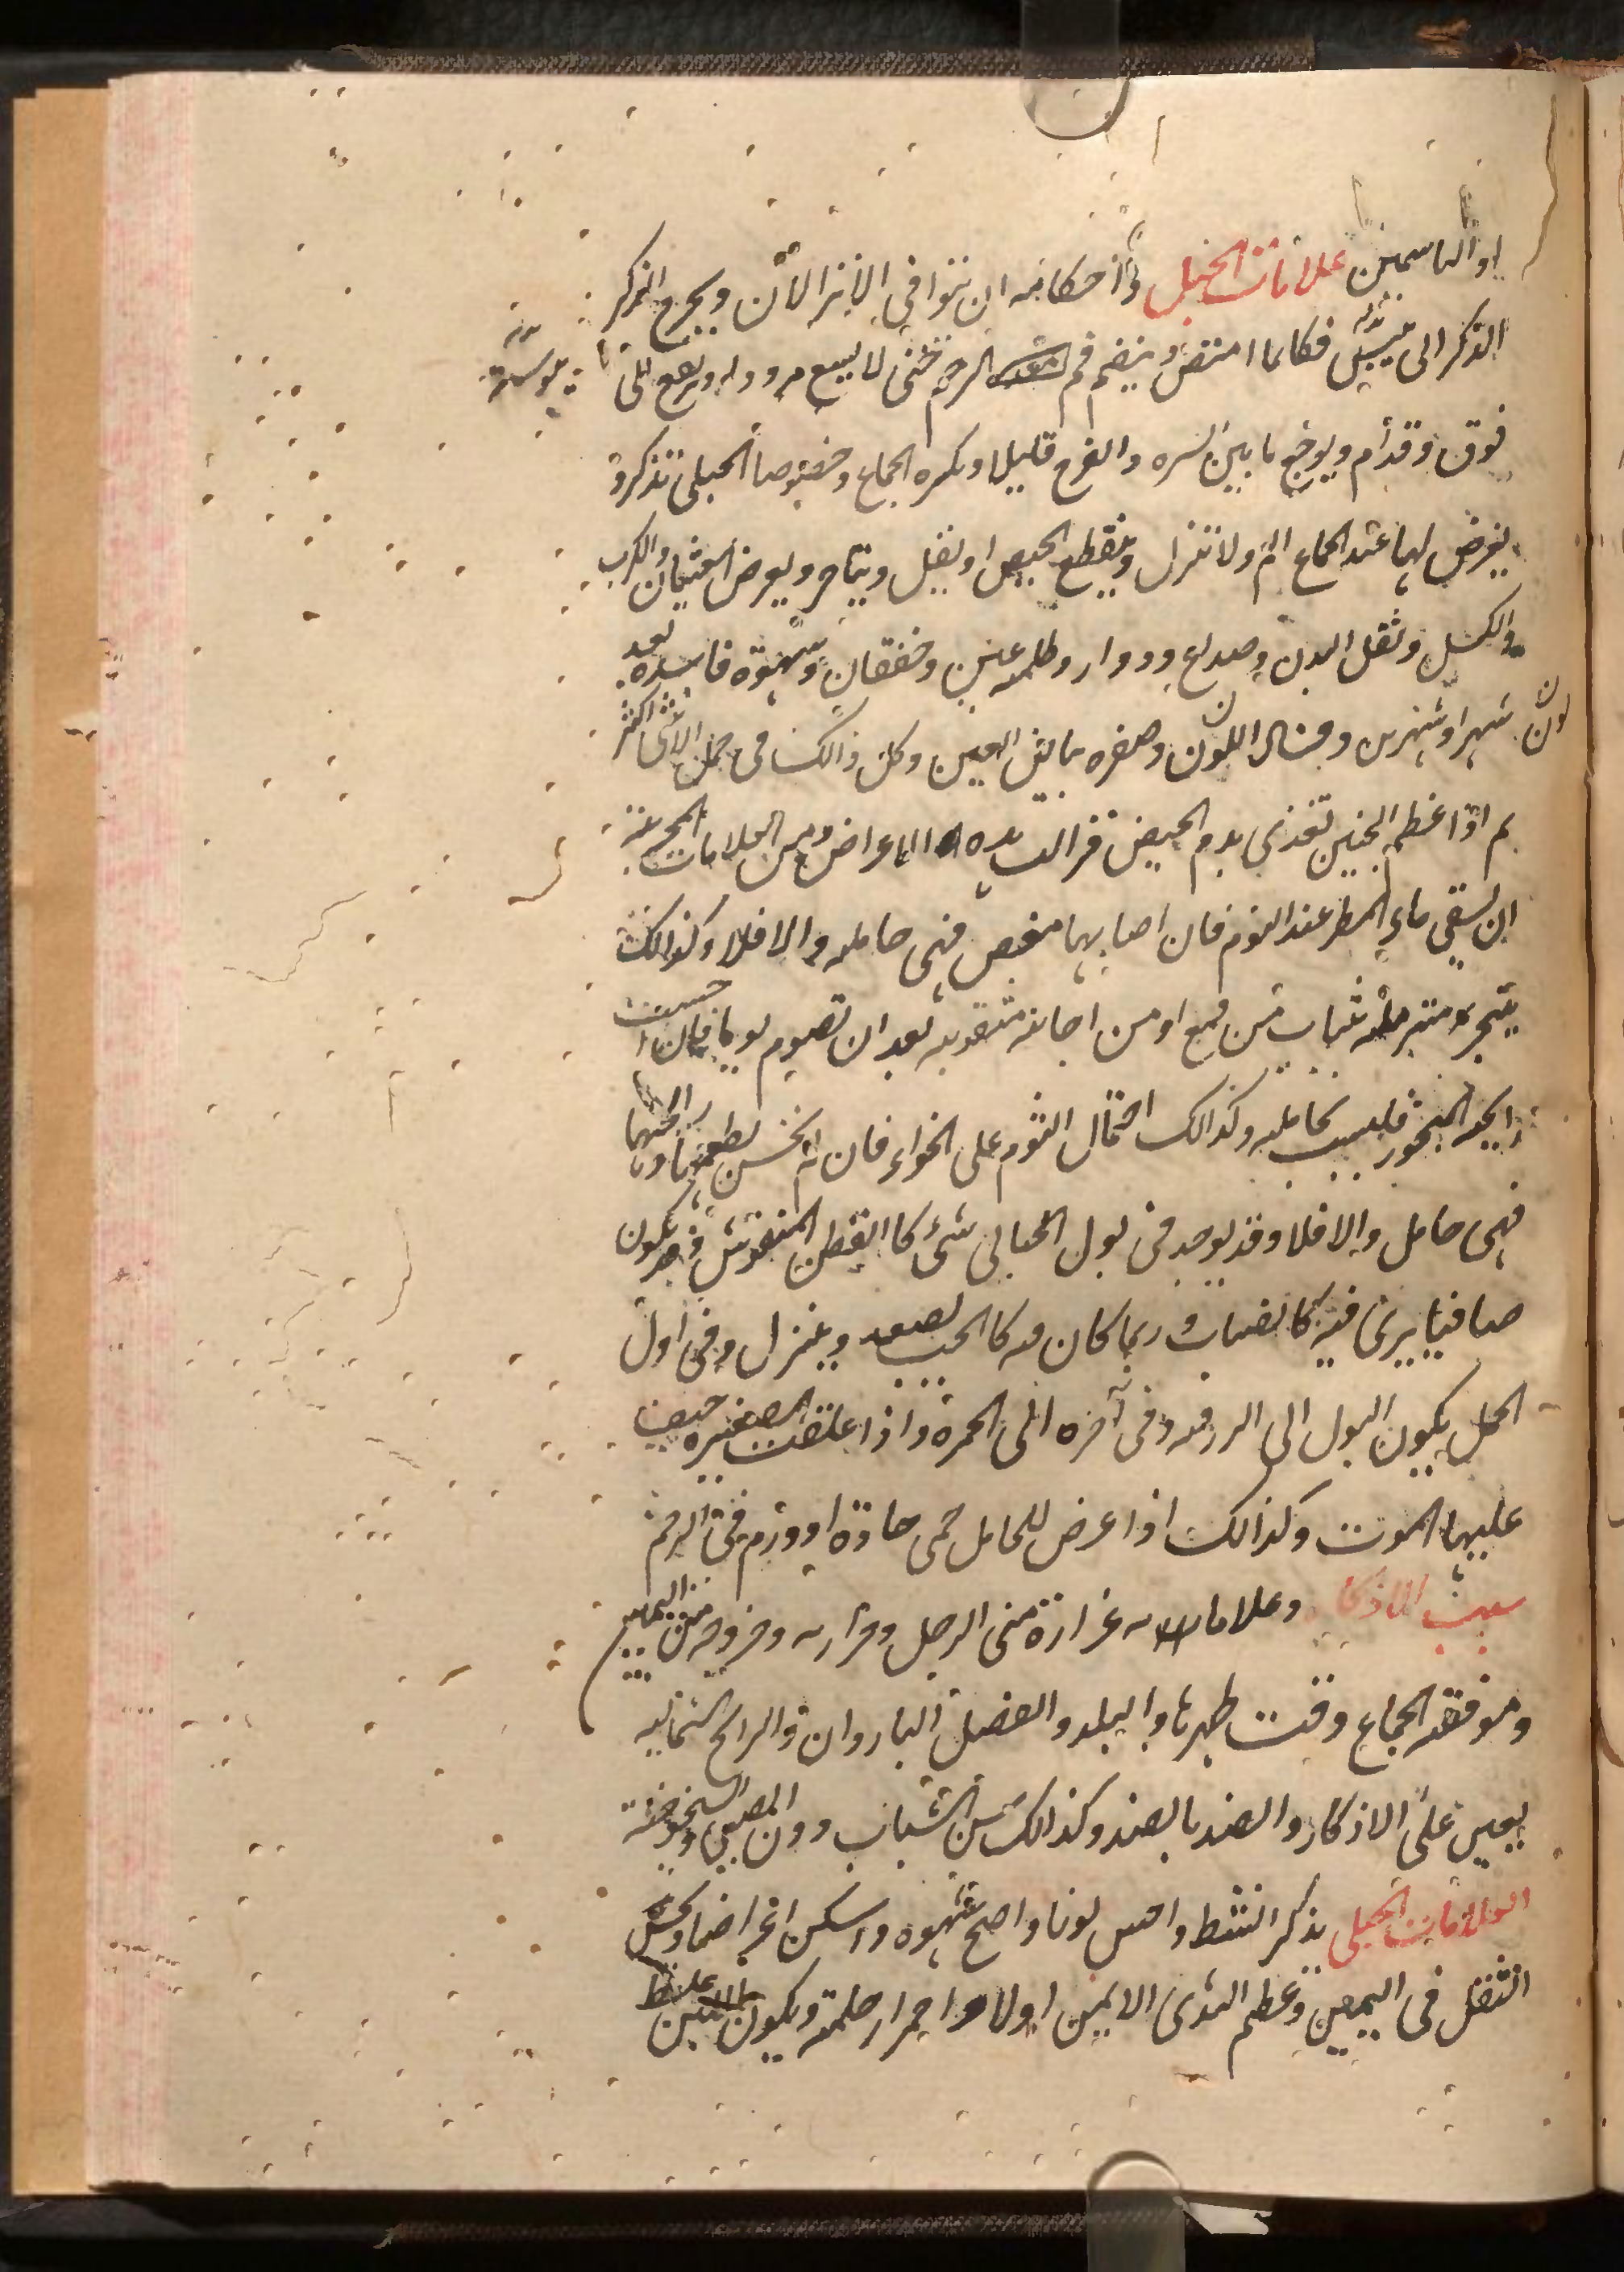 او الياسمين علامات الحبل و احكامه ان يتوافى الانزالان ويخرج الذكر
الذكر الى يبس فكانما امتص وينضم فم الرحم حتى لا يسع مرود ويرتفع الى
فوق وقدام ويوجع ما بين السره والفرج قليلا ويكره الجماع وخصوصا الحبلى بذكر و
يعرض لها عند الجماع الم ولا تنزل وينقطع الحيض او يقل ويتاخر ويعرض الغثيان والكرب
والكسل وثقل البدن وصداع ودوار وظلمه عين وخفقان وشهوة فاسده بعد
شهر او شهرين وفساد اللون وصفره بياض العين وكل ذالك فى حمل الانثى اكثر
ثم اذا عظم الجنين تغذى بدم الحيض فزالت هذه الاعراض ومن العلامات المجربه
ان يسقى ماء المطر عند النوم فان اصابها مغص فهى حامله والا فلا وكذالك
يتبخر متزمله بثياب من قمع او من اجانه مثقوبه بعد ان تصوم يوما فان احسست
رايحه البخور فليست بحامله وكذالك احتمال الثوم على الخواء فان لم تحس بطعمها و رائحتها
فهى حامل والا فلا وقد يوجد فى بول الحبالى شىء كا القطن المنفوش وقد يكون
صافيا يرى فيه كا لضباب و ربما كان فيه كا الحب يصعد وينزل وفى اول
الحمل يكون البول الى الزرقه وفى آخره الى الحمرة واذا علقت الصغيره خيف
عليها الموت وكذالك اذا عرض للحامل حمى حادة او ورم فى الرحم
سبب الاذكار وعلاماته غزارة منى الرجل وحرارته وخروجه من اليمين
وموفقه الجماع وقت طهرها والبلد والفصل الباردان والرايح الشماليه
يعين على الاذكار والضد بالضد وكذالك سن الشباب دون الصبى والشيخوخة
العلامات الحبلى بذكر انشط واحسن لونا واصح شهوه واسكن اعراضا وتحس
الثقل فى اليمين وعظم الثدى الايمن اولا واحمرار حلمته ويكون اللبن غليظ